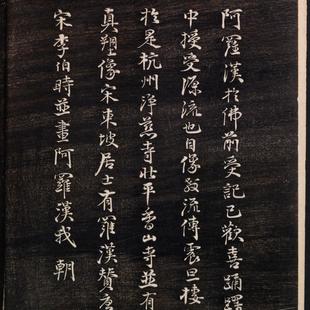 阿羅漢於佛前受記已歡喜踊躍
中授受源流也自像教流傳震旦樓
於是杭州淨慈寺壯平魯山寺並有
真塑像宋東坡居士有羅漢贊唐
宋李伯時並畫阿羅漢我朝